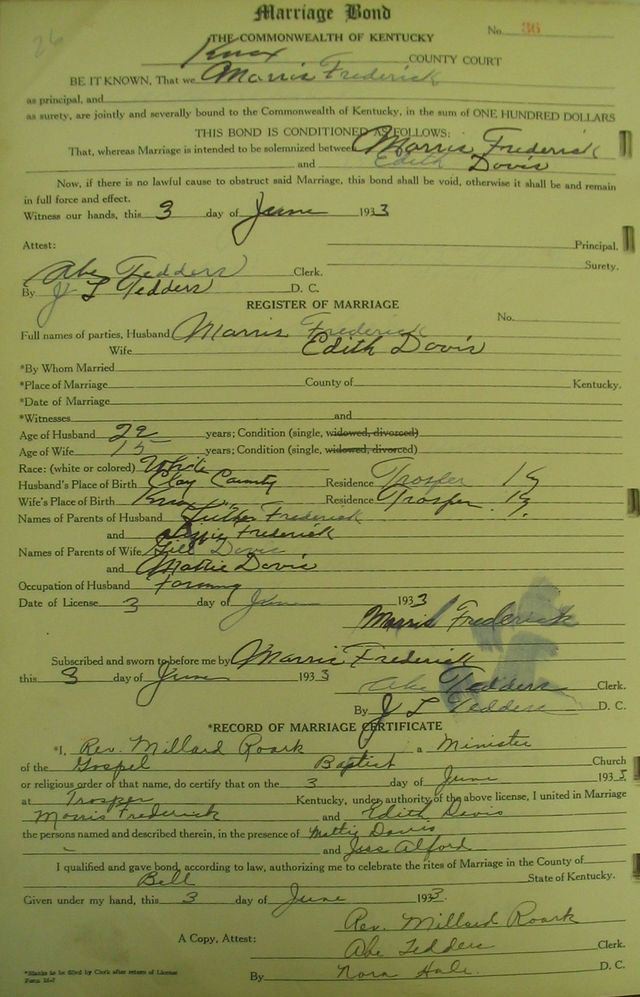 Marriage Bond
26
THE COMMONWEALTH OF KENTUCKY No. 36
Knox COUNTY COURT
BE IT KNOWN, That we Morris Frederick
as principal, and
as surety, are jointly and severally bound to the Commonwealth of Kentucky, in the sum of ONE HUNDRED DOLLARS
THIS BOND IS CONDITIONED AS FOLLOWS:
That, whereas Marriage is intended to be solemnized between Morris Frederick
and Edith Davis
Now, if there is no lawful cause to obstruct said Marriage, this bond shall be void, otherwise it shall be and remain
in full force and effect.
Witness our hands, this 3 day of June 1933
Attest: Principal.
Abe Tedders Clerk. Surety.
By J L Tedders D. C.
REGISTER OF MARRIAGE
No.
Full names of parties, Husband Morris Frederick
Wife Edith Davis
*By Whom Married
*Place of Marriage County of Kentucky.
*Date of Marriage
*Witnesses and
Age of Husband 22 years; Condition (single, widowed, divorced)
Age of Wife 15 years; Condition (single, widowed, divorced)
Race: (white or colored) White
Husband's Place of Birth Clay County Residence Trosper Ky
Wife's Place of Birth Knox " Residence Trosper Ky.
Names of Parents of Husband Luther Frederick
and Lizzie Frederick
Names of Parents of Wife Gill Davis
and Mattie Davis
Occupation of Husband Farming
Date of License 3 day of June 1933
Morris Frederick
Subscribed and sworn to before me by Morris Frederick
this 3 day of June 1933
Abe Tedders Clerk.
By J L Tedders D. C.
*RECORD OF MARRIAGE CERTIFICATE
*I, Rev. Millard Roark a Minister
of the Gospel Baptist Church
or religious order of that name, do certify that on the 3 day of June 1933
at Trosper Kentucky, under authority of the above license, I united in Marriage
Morris Frederick and Edith Davis
the persons named and described therein, in the presence of Mattie Davis
and Jess Alford
I qualified and gave bond, according to law, authorizing me to celebrate the rites of Marriage in the County of
Bell State of Kentucky.
Given under my hand, this 3 day of June 1933.
Rev. Millard Roark
A Copy, Attest: Abe Tedders Clerk.
By Nora Hale. D. C.
*Blanks to be filled by Clerk after return of License